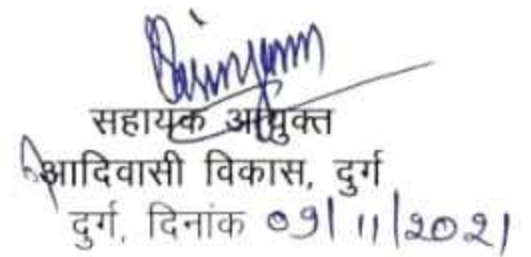 सहायक आयुक्त
आदिवासी विकास, दुर्ग
दुर्ग, दिनांक 09/11/2021